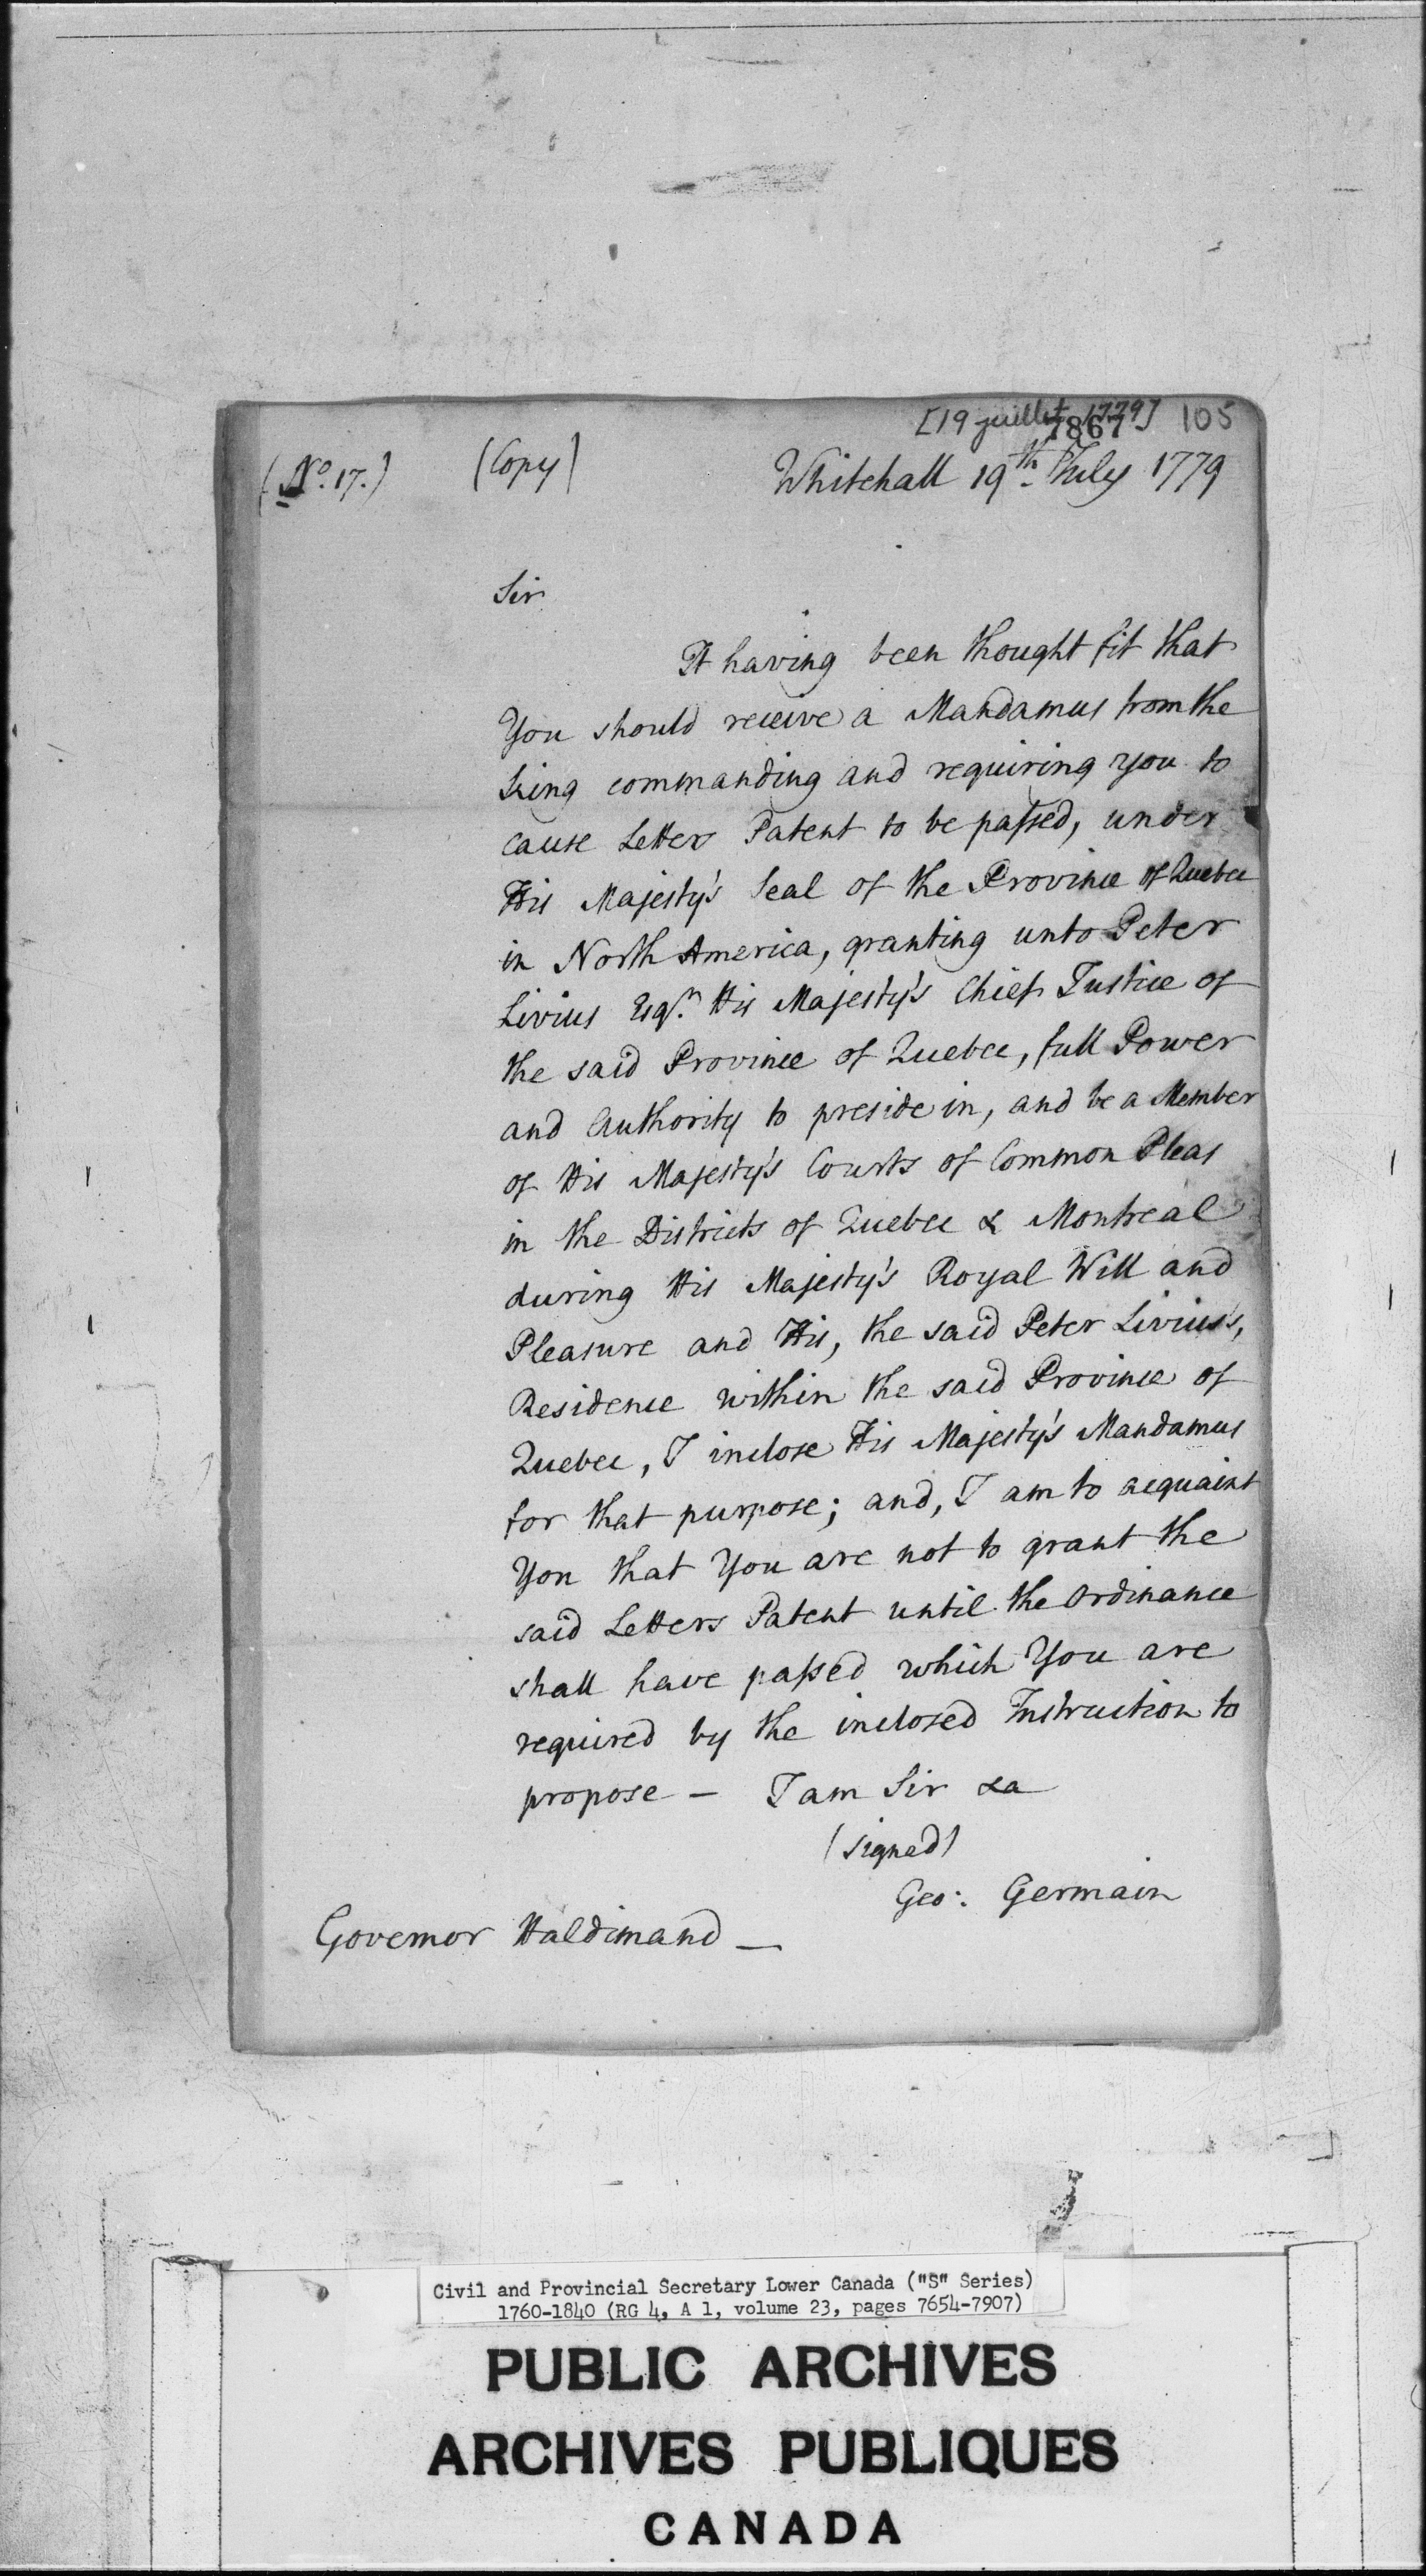 [19 juillet 1779] 105
7867
(No. 17.) (Copy) Whitehall 19th July 1779
Sir
It having been thought fit that
You should receive a Mandamus from the
King commanding and requiring you to
cause Letters Patent to be passed, under
His Majesty's Seal of the Province of Quebec
in North America, granting unto Peter
Livius Esqr. His Majesty's Chief Justice of
the said Province of Quebec, full Power
and Authority to preside in, and be a Member
of His Majesty's Courts of Common Pleas
in the Districts of Quebec & Montreal
during His Majesty's Royal Will and
Pleasure and His, the said Peter Livius's,
Residence within the said Province of
Quebec, I inclose His Majesty's Mandamus
for that purpose; and, I am to acquaint
You that You are not to grant the
said Letters Patent until the Ordinance
shall have passed which You are
required by the inclosed Instruction to
propose — I am Sir &a
(signed)
Geo: Germain
Governor Haldimand —
Civil and Provincial Secretary Lower Canada ("S" Series)
1760-1840 (RG 4, A 1, volume 23, pages 7654-7907)
PUBLIC ARCHIVES
ARCHIVES PUBLIQUES
CANADA